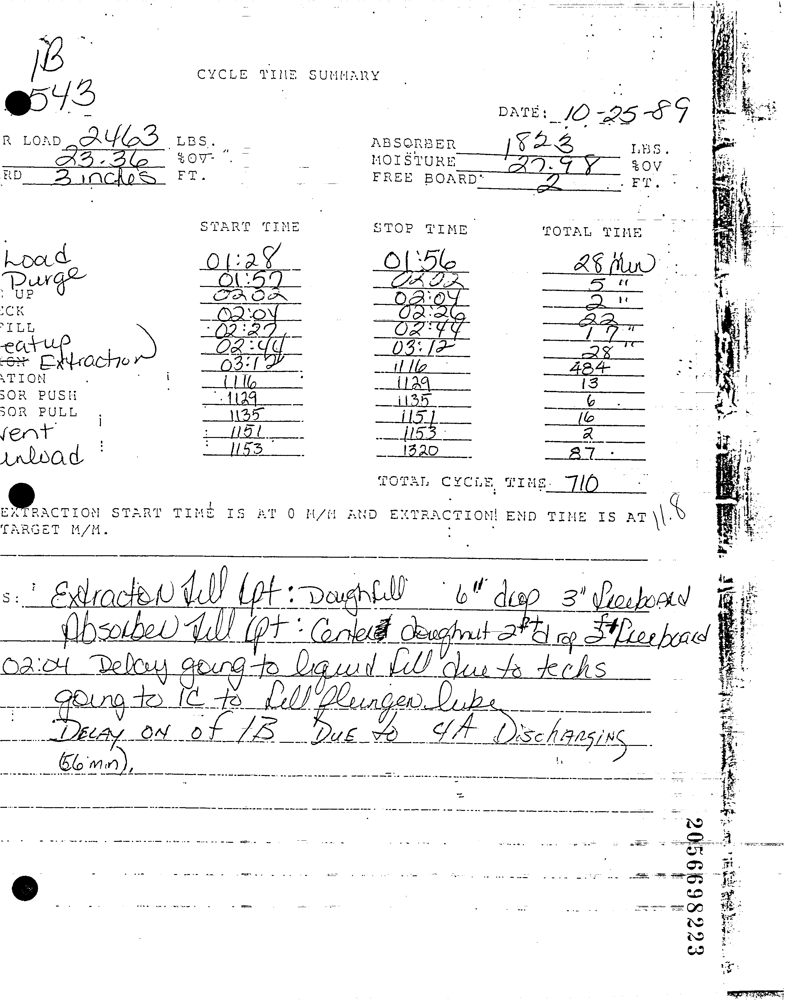 1B
543
CYCLE TIME SUMMARY
DATE: 10-25-89
R LOAD 2463 LBS. ABSORBER 1823 LBS.
23.36 %OV MOISTURE 27.98 %OV
RD 3 inches FT. FREE BOARD 2 FT.
START TIME STOP TIME TOTAL TIME
Load 01:28 01:56 28 Min
Purge 01:57 0202 5 "
UP 0202 02:04 2 "
ECK 02:04 02:26 22
FILL 02:27 02:44 17 "
eatup 02:44 03:12 28 "
ION Extraction 03:12 1116 484
ATION 1116 1129 13
SOR PUSH 1129 1135 6
SOR PULL 1135 1151 16
vent 1151 1153 2
unload 1153 1320 87
TOTAL CYCLE TIME 710
EXTRACTION START TIME IS AT 0 M/M AND EXTRACTION END TIME IS AT 11.8
TARGET M/M.
S: Extractor fill Cpt: Doughfill 6" drop 3" freeboard
Absorber fill Cpt: Center doughnut 2ft drop freeboard
02:04 Delay going to liquid fill due to techs
going to 1C to fill plunger lube
DELAY ON of 1B DUE to 4A DischARGING
(56 min).
2056698223